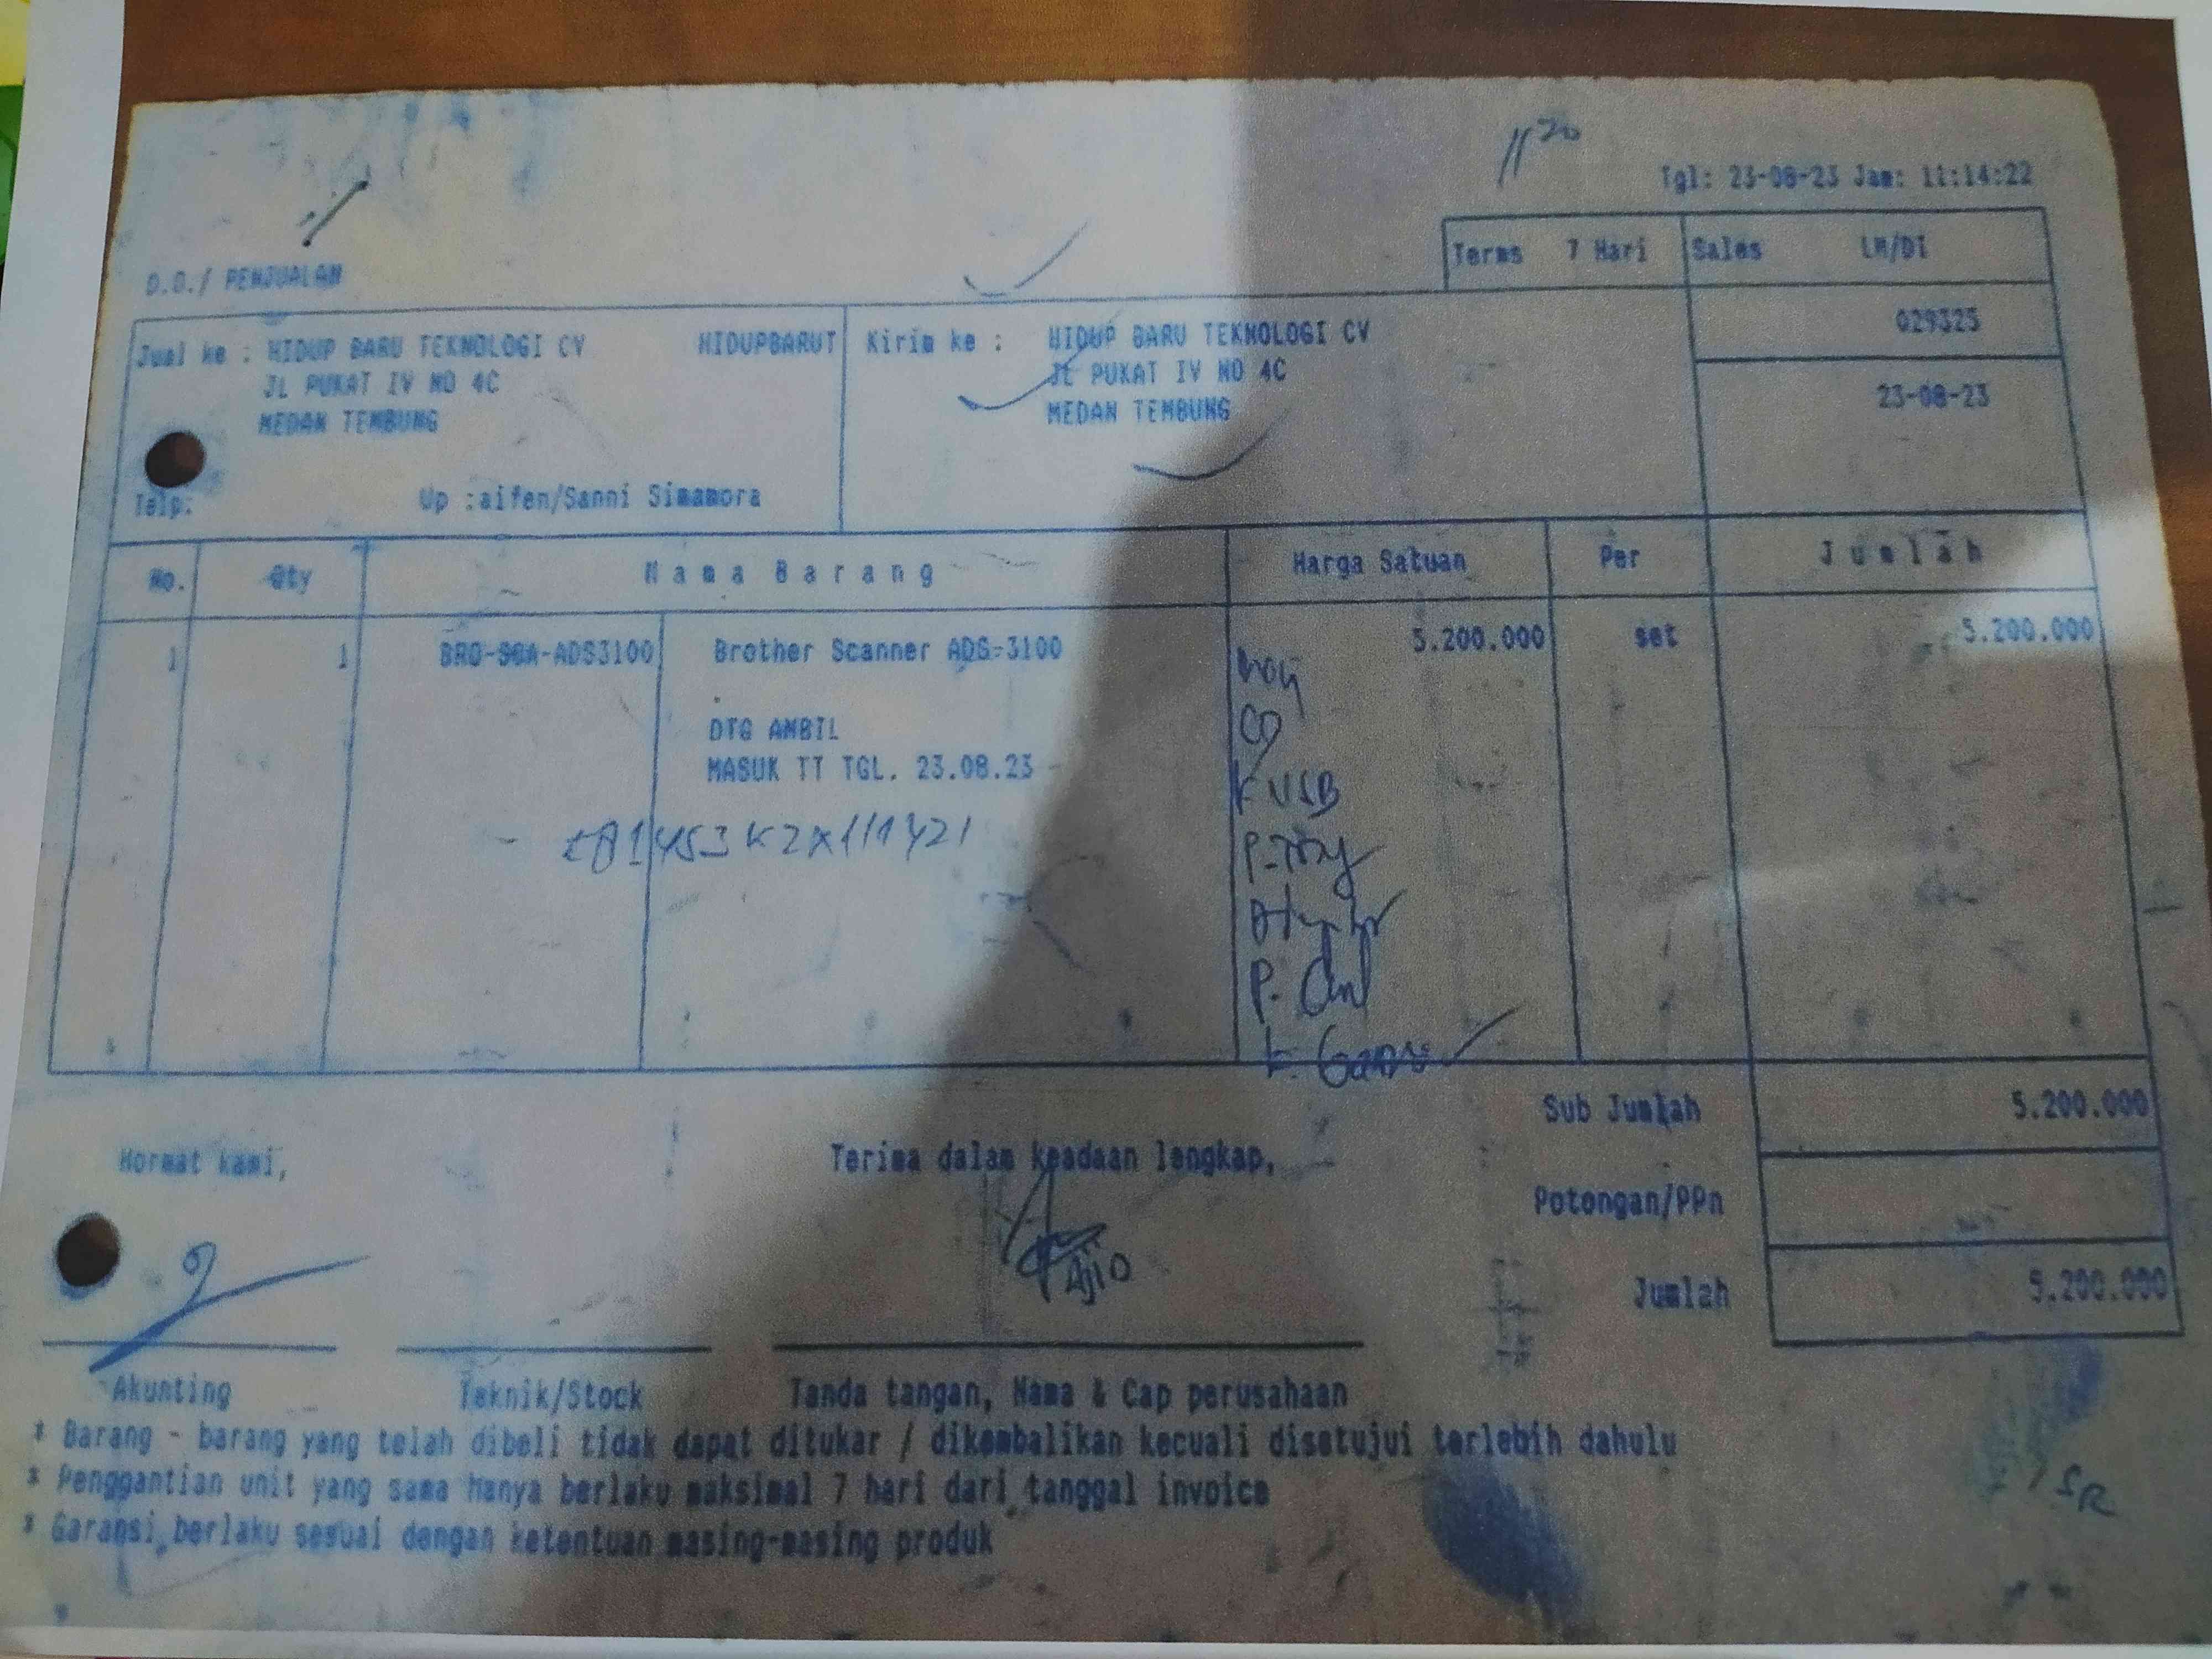 11 20
Tgl: 23-08-23 Jam: 11:14:22
Terms 7 Hari Sales LM/DI
D.O./ PENJUALAN
029325
23-08-23
Jual ke : HIDUP BARU TEKNOLOGI CV HIDUPBARUT
JL PUKAT IV NO 4C
MEDAN TEMBUNG
Telp: Up :aifen/Sanni Simamora
Kirim ke : HIDUP BARU TEKNOLOGI CV
JL PUKAT IV NO 4C
MEDAN TEMBUNG
No. Qty Nama Barang Harga Satuan Per Jumlah
1 1 BRO-SCA-ADS3100 Brother Scanner ADS-3100 5.200.000 set 5.200.000
DTG AMBIL
MASUK TT TGL. 23.08.23
CD
K USB
Sub Jumlah 5.200.000
Potongan/PPn
Jumlah 5.200.000
Hormat kami,
Terima dalam keadaan lengkap,
Ajio
Akunting Teknik/Stock Tanda tangan, Nama & Cap perusahaan
* Barang - barang yang telah dibeli tidak dapat ditukar / dikembalikan kecuali disetujui terlebih dahulu
* Penggantian unit yang sama hanya berlaku maksimal 7 hari dari tanggal invoice
* Garansi berlaku sesuai dengan ketentuan masing-masing produk
SR